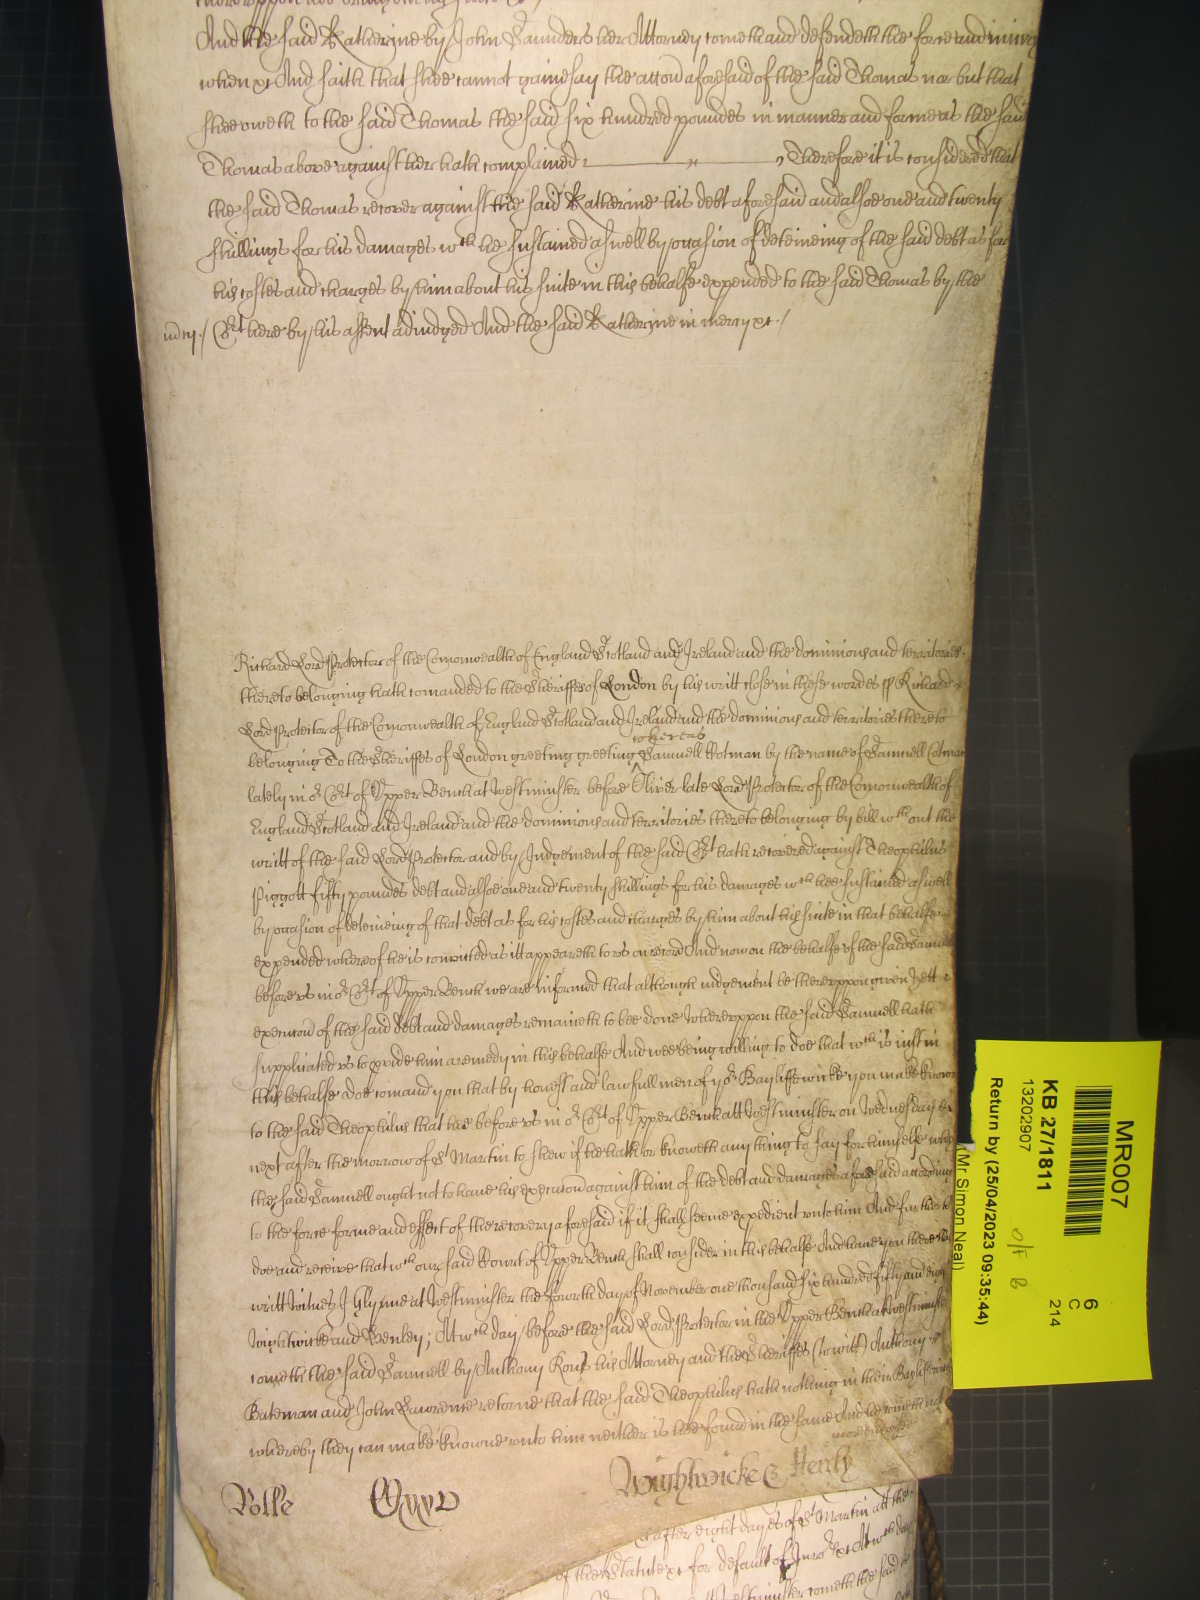 And the said Katherine by John Saunders her Attorney cometh and defendeth the force and iniury
when &c And saith that shee cannot gainesay the accon aforesaid of the said Thomas nor but that
shee oweth to the said Thomas the said six hundred poundes in manner and forme as the said
Thomas above against her hath complained Therefore it is considered that
the said Thomas recover against the said Katherine his debt aforesaid and alsoe one and twenty
shillings for his damages wch he sustained aswell by occasion of deteineing of the said debt as for
his costes and charges by him about his suite in this behalfe expended to the said Thomas by the
mercy./ Crt here by his assent adiudged And the said Katherine in mercy &c./
Richard Lord Protector of the Comonwealth of England Scotland and Ireland and the dominions and territories
thereto belonging hath comanded to the Sheriffes of London by his writt close in these wordes ss Richard
Lord Protector of the Comonwealth of England Scotland and Ireland and the dominions and territories thereto
whereas
belonging To the Sheriffes of London greeting greeting Samuell Cotman by the name of Samuell Cotman
lately in or Crt of Upper Bench at Westminster before Oliver late Lord Protector of the Comonwealth of
England Scotland and Ireland and the dominions and territories thereto belonging by bill wthout the
writt of the said Lord Protector and by Judgement of the said Crt hath recovered against Theophilus
Piggott fifty poundes debt and alsoe one and twenty shillings for his damages wch hee sustained aswell
by occasion of deteineing of that debt as for his costes and charges by him about his suite in that behalfe
expended whereof he is convicted as itt appeareth to vs on record And now on the behalfe of the said Samuell
before vs in or Crt of Upper Bench we are informed that although iudgement be thereuppon given yett
execucon of the said debt and damages remaineth to bee done Whereuppon the said Samuell hath
supplicated vs to provide him a remedy in this behalfe And wee being willing to doe that wch is iust in
this behalfe doe comand you that by honest and lawfull men of yor Bayliffewicke you make knowne
to the said Theophilus that hee be before vs in or Crt of Upper Bench att Westminster on Wednesday
next after the morrow of St Martin to shew if he hath or knoweth any thing to say for himselfe why
the said Samuell ought not to have his execucon against him of the debt and damages aforesaid according
to the force forme and effect of the recovery aforesaid if it shall seeme expedient vnto him And further to
doe and receive that wch our said Court of Upper Bench shall consider in this behalfe And have you there this
writt Witnes J Glynne at Westminster the fourth day of November one thousand six hundred fifty and eight
Wightwicke and Henley; At wch day before the said Lord Protector in the Upper Bench at Westminster
cometh the said Samuell by Anthony Rous his Attorney and the Sheriffes (to witt) Anthony
Bateman and John Lawrence retorne that the said Theophilus hath nothing in their Bayliffewicke
whereby they can make knowne vnto him neither is hee found in the same And he cometh not
more endorsed
Rolle Wightwicke & Henly
after eight dayes of St Martin att the
of the Statute &c for default of Juror &c At wch day
Westminster cometh the said
MR007
KB 27/1811
13202907
Return by (25/04/2023 09:35:44)
(Mr Simon Neal)
6
C
214